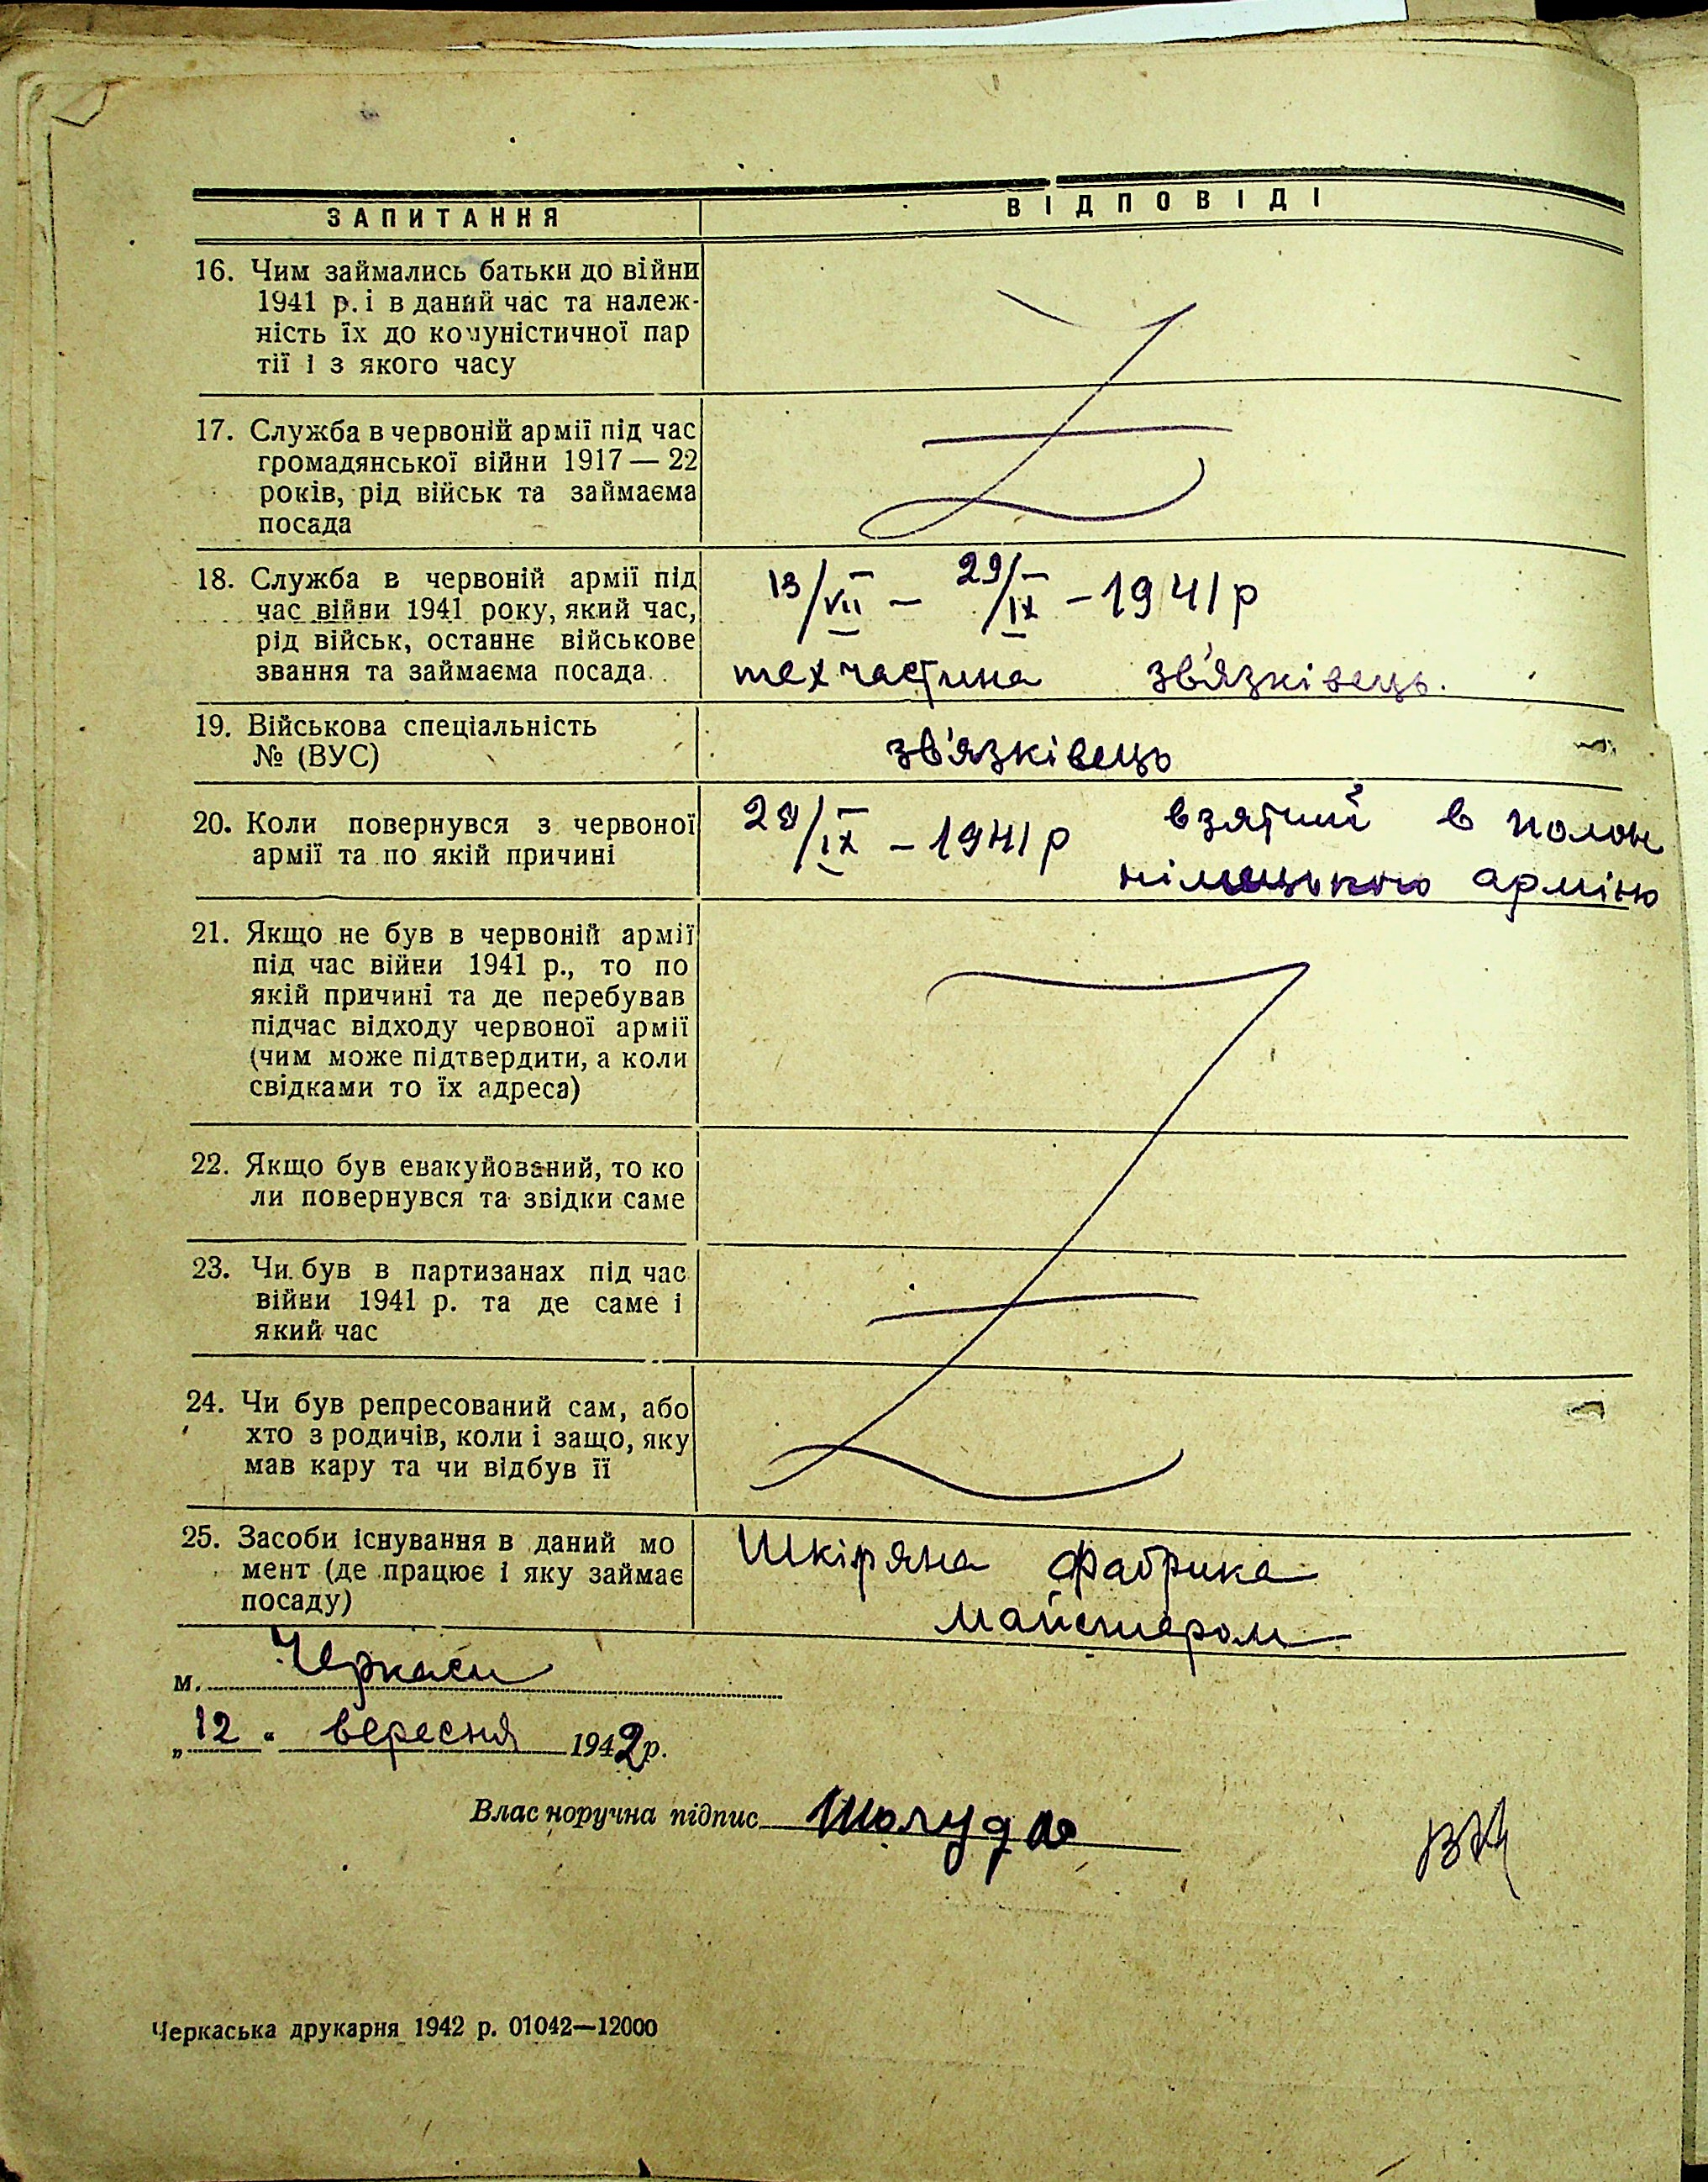 ЗАПИТАННЯ
ВІДПОВІДІ
16. Чим займались батьки до війни
1941 р. і в даний час та належ-
ність їх до комуністичної пар
тії і з якого часу
17. Служба в червоній армії під час
громадянської війни 1917 — 22
років, рід військ та займаєма
посада
18. Служба в червоній армії під
час війни 1941 року, який час,
рід військ, останнє військове
звання та займаєма посада.
13/VII – 29/IX – 1941 р
тех частина зв'язківець.
19. Військова спеціальність
№ (ВУС)
зв'язківець
20. Коли повернувся з червоної
армії та по якій причині
29/IX – 1941 р взятий в полон
німецькою армією
21. Якщо не був в червоній армії
під час війни 1941 р., то по
якій причині та де перебував
підчас відходу червоної армії
(чим може підтвердити, а коли
свідками то їх адреса)
22. Якщо був евакуйований, то ко
ли повернувся та звідки саме
23. Чи був в партизанах під час
війни 1941 р. та де саме і
який час
24. Чи був репресований сам, або
хто з родичів, коли і защо, яку
мав кару та чи відбув її
25. Засоби існування в даний мо
мент (де працює і яку займає
посаду)
Шкіряна фабрика
майстером
м. Черкаси
„12“ вересня 1942 р.
Власноручна підпис Шолудо
Черкаська друкарня 1942 р. 01042—12000